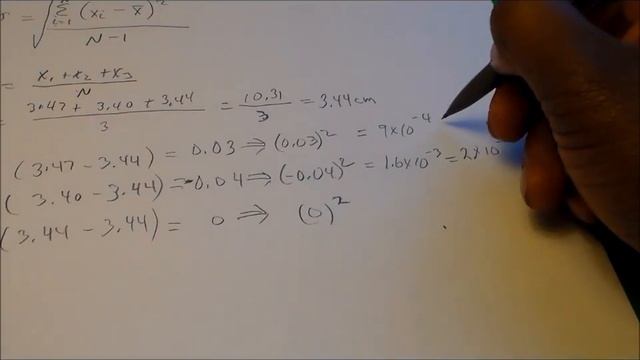 σ = √( Σ i=1 (xi − x̄)² / N−1 )
= x₁ + x₂ + x₃ / N
= 3.47 + 3.40 + 3.44 / 3 = 10.31 / 3 = 3.44 cm
(3.47 − 3.44) = 0.03 ⇒ (0.03)² = 9×10⁻⁴
(3.40 − 3.44) = −0.04 ⇒ (−0.04)² = 1.6×10⁻³ = 2×10
(3.44 − 3.44) = 0 ⇒ (0)²